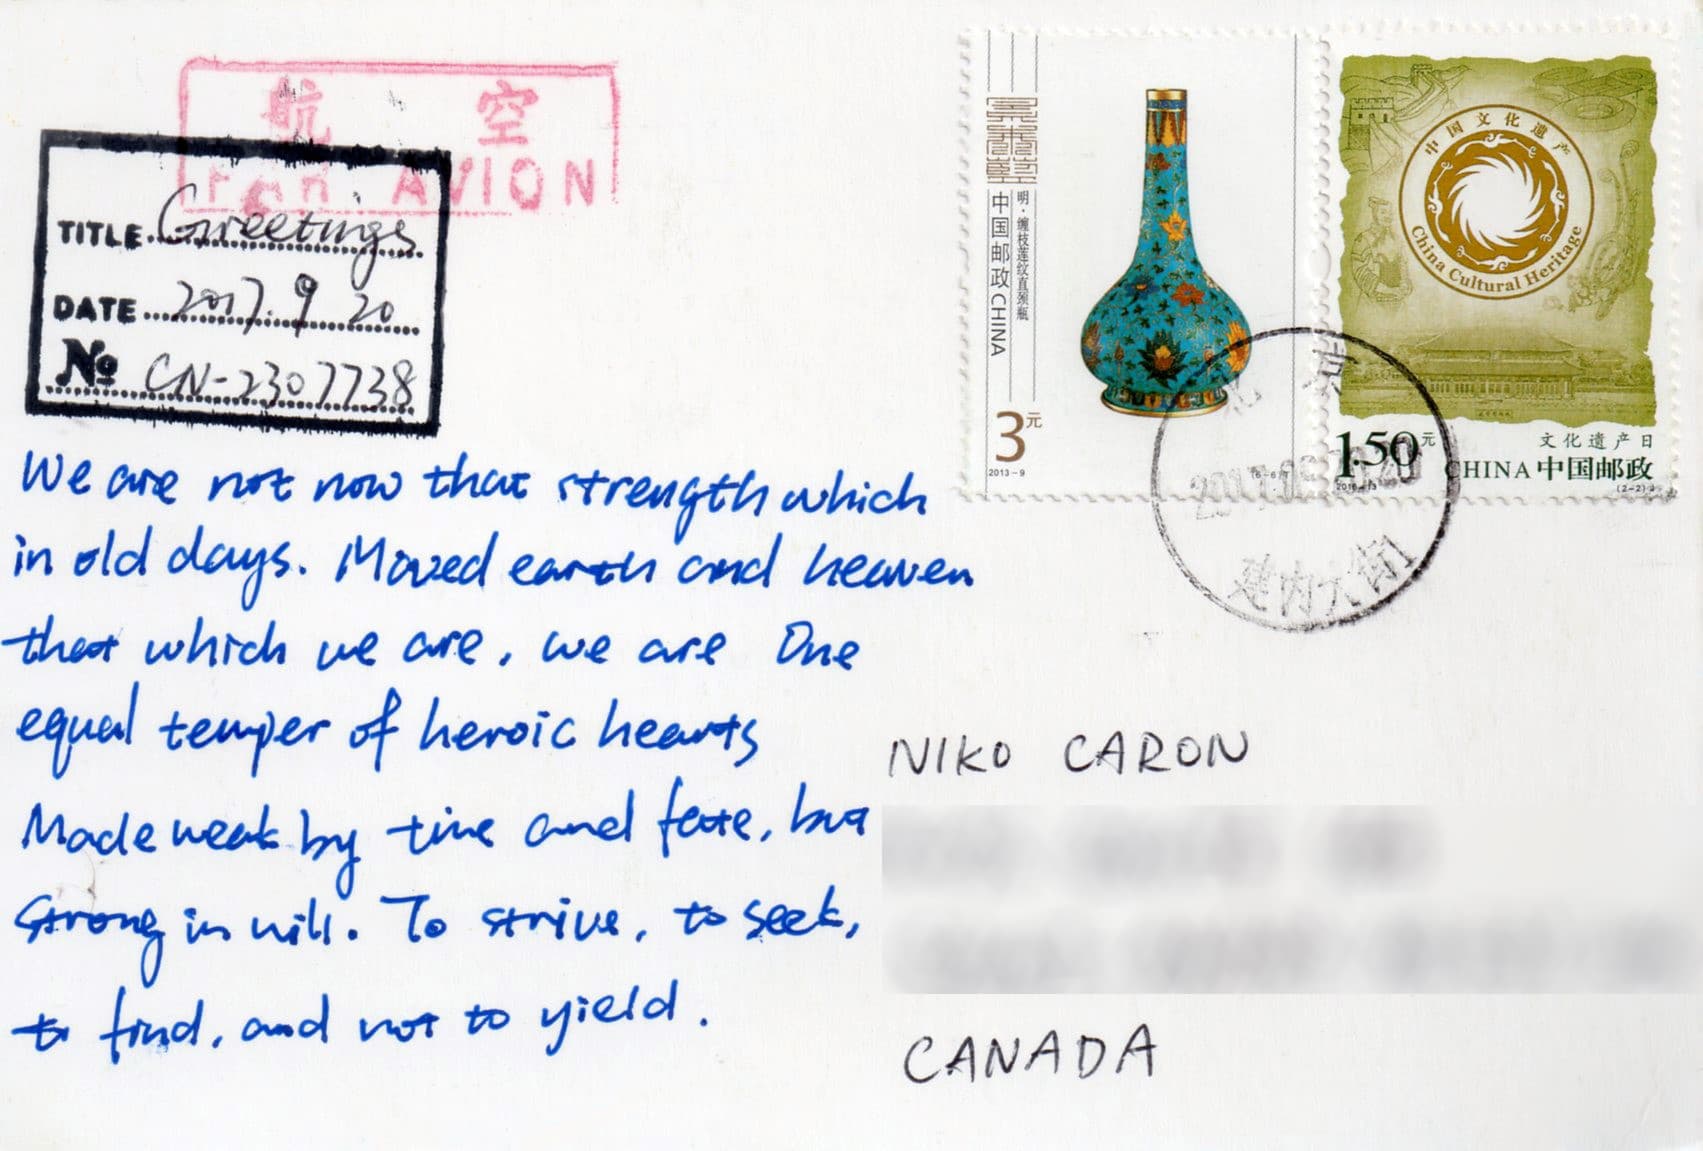 航 空
PAR AVION
TITLE Greetings
DATE 2017.9 20
No CN-2307738
We are not now that strength which
in old days. Moved earth and heaven
that which we are, we are One
equal temper of heroic hearts
Made weak by time and fate, but
Strong in will. To strive, to seek,
to find, and not to yield.
景泰蓝
中国邮政 CHINA
明·缠枝莲纹直颈瓶
3元
2013-9
(6-6)T
中国文化遗产
China Cultural Heritage
1.50元
文化遗产日
CHINA 中国邮政
(2-2)J
北京
建内大街1
NIKO CARON
CANADA